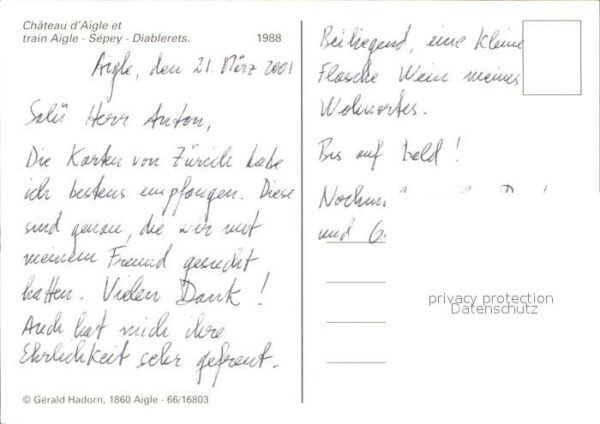 Château d'Aigle et
train Aigle - Sépey - Diablerets. 1988
Aigle, den 21. März 2001
Salü Herr Anton,
Die Karten von Zürich habe
ich bestens empfangen. Diese
sind genau, die wir mit
meinem Freund gesucht
hatten. Vielen Dank !
Auch hat mich ihre
Ehrlichkeit sehr gefreut.
© Gérald Hadorn, 1860 Aigle - 66/16803
Beiliegend, eine kleine
Flasche Wein meines
Wohnortes.
Bis auf bald !
und
privacy protection
Datenschutz